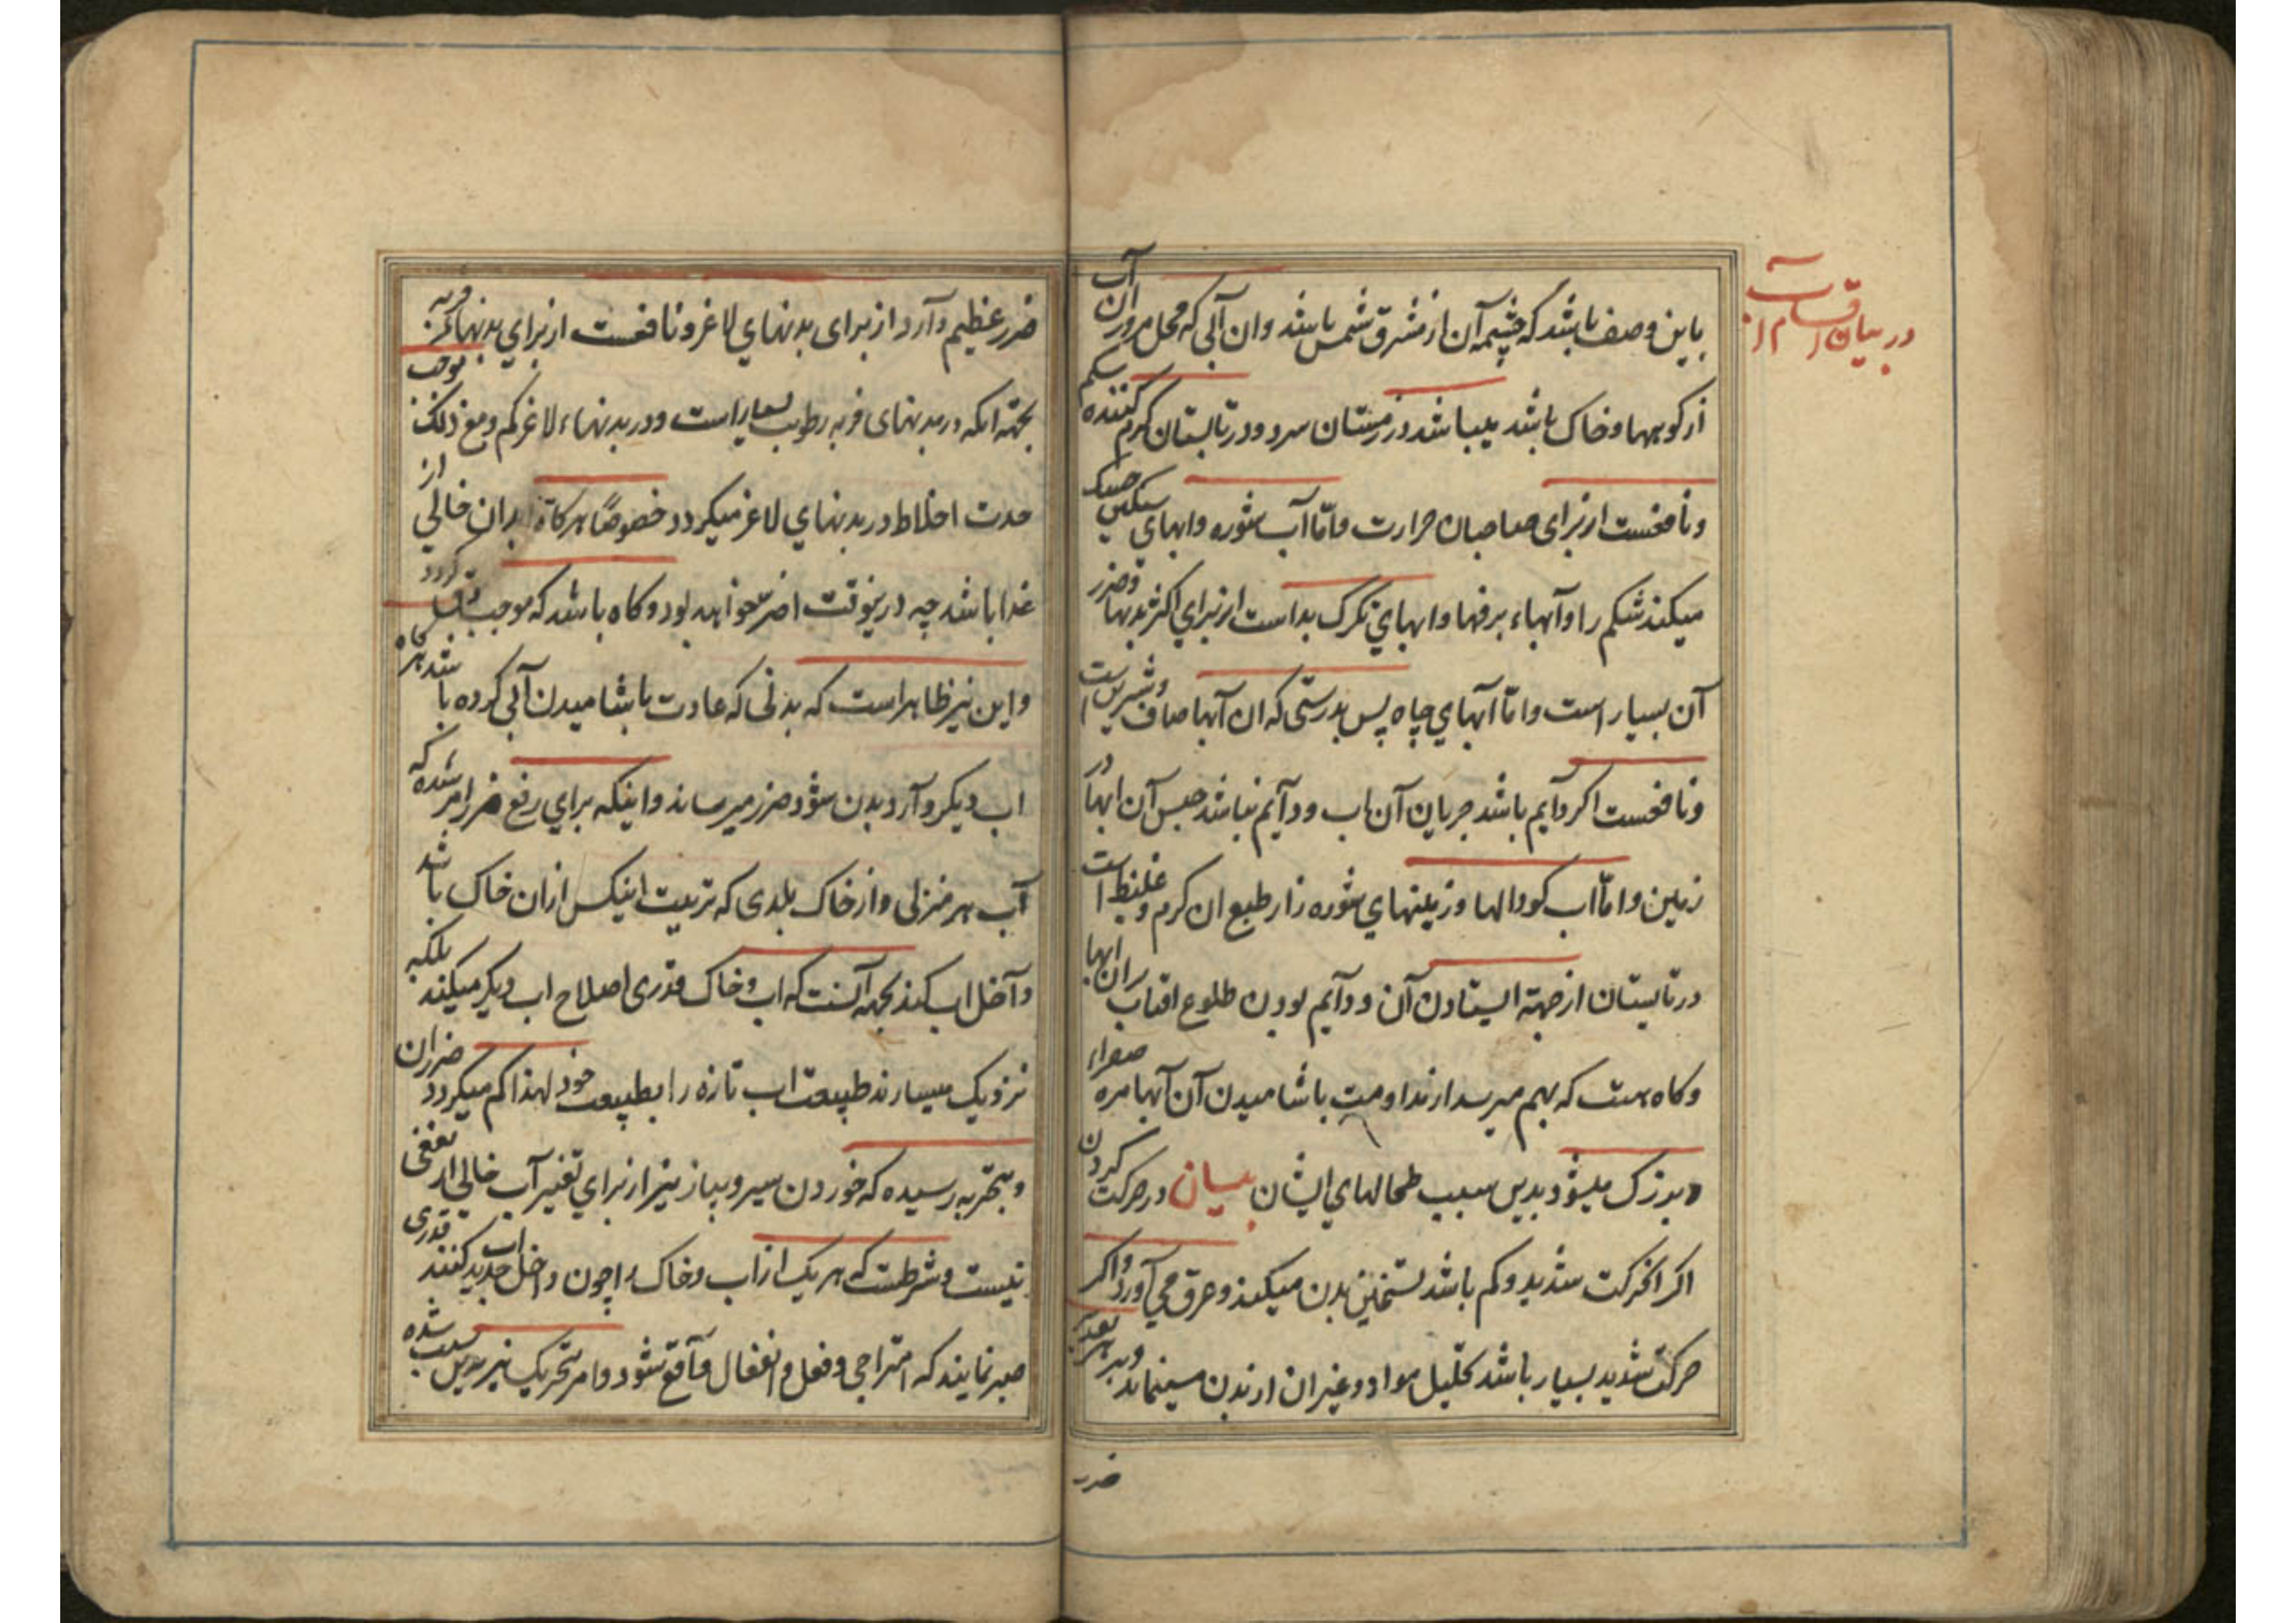 در بیان اقسام آب
باین وصف باشد که چشمه آن از مشرق شمس باشد وان آبی که محل مرور آن آب
از کوهها و خاک باشد میباشد در زمستان سرد و در تابستان گرم کننده شکم
و نافعست از برای صاحبان حرارت و امّا آب شوره و ابهای سنگین خشک
میکند شکم را و آبهاء برفها و ابهای تگرگ بد است از برای اکثر بدنها و ضرر
آن بسیار است و امّا آبهای چاه پس بدرستی که ان آبها صاف و شیرین است
و نافعست اکر دآیم باشد جریان آن اب و دآیم نباشد حبس آن ابها در
زمین و امّا اب کودالها و زمینهای شوره زار طبع ان کرم و غلیظ است
در تابستان از جهة ایستادن آن و دآیم بودن طلوع افتاب بران ابها
و کاه هست که بهم میرسد از مداومت باشامیدن آن آبها مره صفراء
و بزرک میشود بدین سبب طحالهای ایشان بیان در حرکت کردن
اکر انحرکت شدید و کم باشد تسخین بدن میکند و عرق می آورد و اکر
حرکت شدید بسیار باشد تحلیل مواد و غیر ان از بدن مینماید
ضرر
ضرر عظیم وآرد از برای بدنهای لاغر و نافعست از برای بدنهای فربه
بجهة انکه در بدنهای فربه رطوبت بسیار است و در بدنهاء لاغر کم و مع ذلک موجب
حدت اخلاط در بدنهای لاغر میکردد خصوصًا هرکاه بدان خالی از
غدا باشد چه در ینوقت اضر خواهد بود و کاه باشد که موجب کردد
و این نیز ظاهر است که بدنی که عادت باشامیدن آبی کرده باشد هرکاه
اب دیکر وآرد بدن شود ضرر میرساند و اینکه برای رفع ضرر امر شده که
آب هر منزلی و از خاک بلدی که تربیت اینکس از ان خاک باشد
دآخل اب کند بجهة آنست که اب و خاک قدری اصلاح اب دیکر میکند بلکه
نزدیک میسازند طبیعت اب تازه را بطبیعت خود لهذا کم میکردد ضرر ان
و بتجربه رسیده که خوردن سیر و پیاز نیز از برای تغییر آب خالی از نفعی
نیست و شرطست که هر یک از اب و خاک را چون داخل اب جدید کنند قدری
صبر نمایند که امتزاجی و فعل و انفعال وآقع شود و امر بتحریک نیز بدین سبب شده